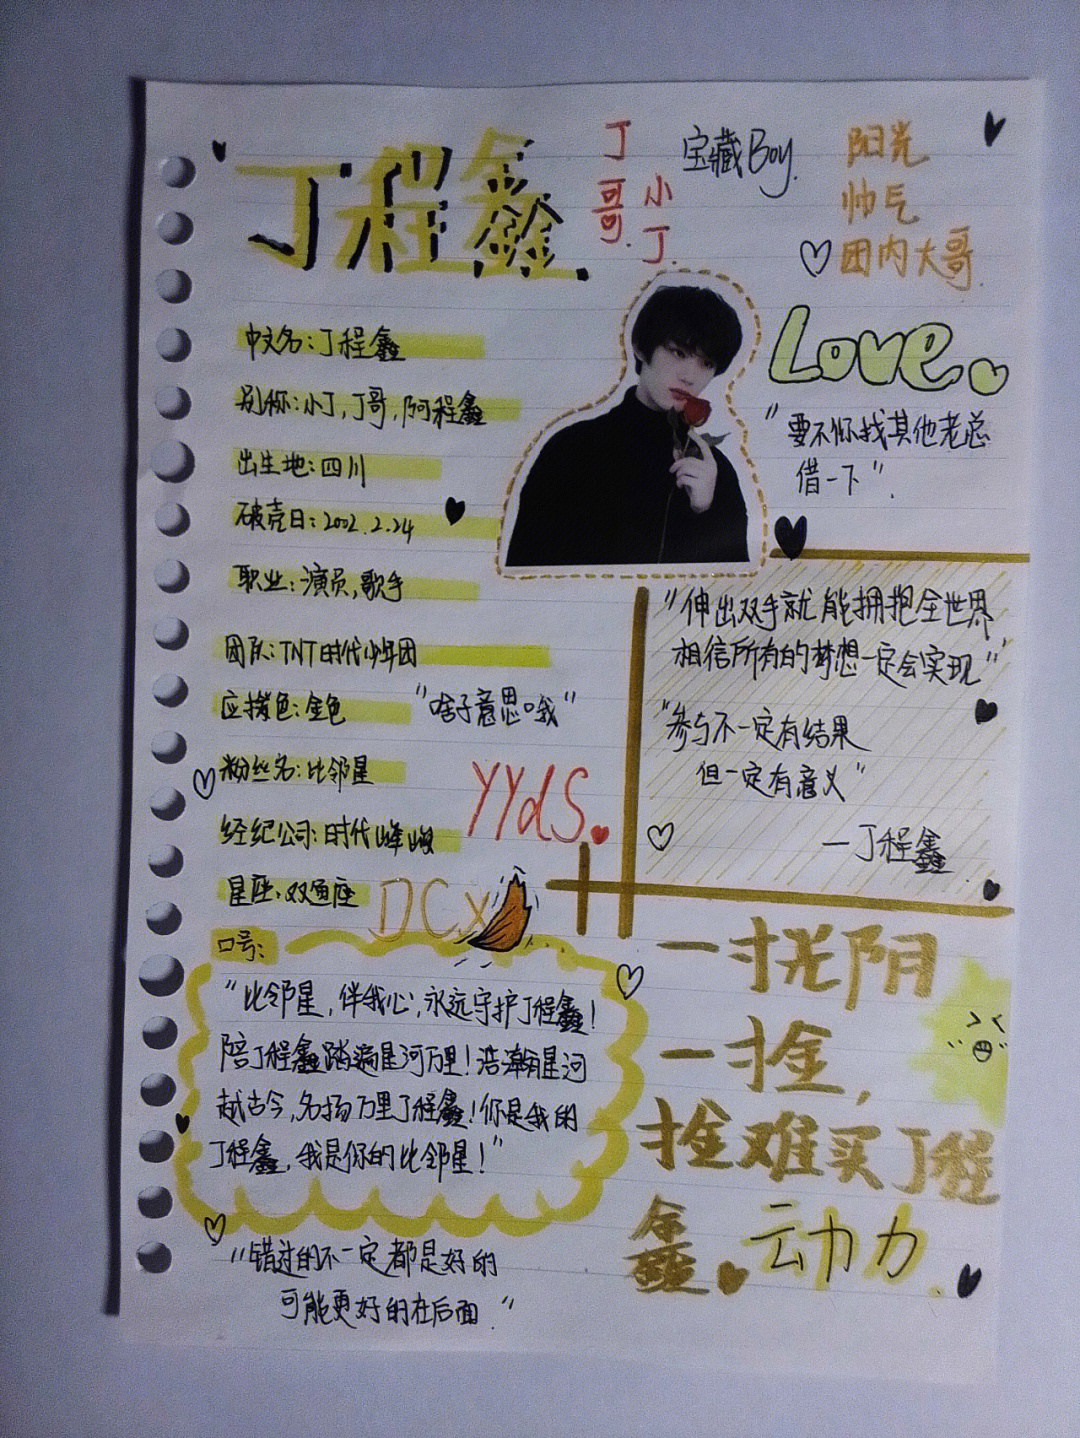 丁程鑫
丁哥
小丁
宝藏Boy.
阳光
帅气
团内大哥
Love
中文名:丁程鑫
别称:小丁,丁哥,阿程鑫
出生地:四川
破壳日:2002.2.24
职业:演员,歌手
团队:TNT时代少年团
应援色:金色
"啥子意思哦"
粉丝名:比邻星
经纪公司:时代峰峻
星座:双鱼座
"要不你找其他老总
借一下".
"伸出双手就能拥抱全世界
相信所有的梦想一定会实现"
"参与不一定有结果
但一定有意义"
一丁程鑫
YYdS
DCx
口号:
"比邻星,伴我心;永远守护丁程鑫!
陪丁程鑫踏遍星河万里!浩瀚星河
越古今,名扬万里丁程鑫!你是我的
丁程鑫,我是你的比邻星!"
"错过的不一定都是好的
可能更好的在后面."
一寸光阴
一寸金,
寸金难买丁程
鑫
云力力